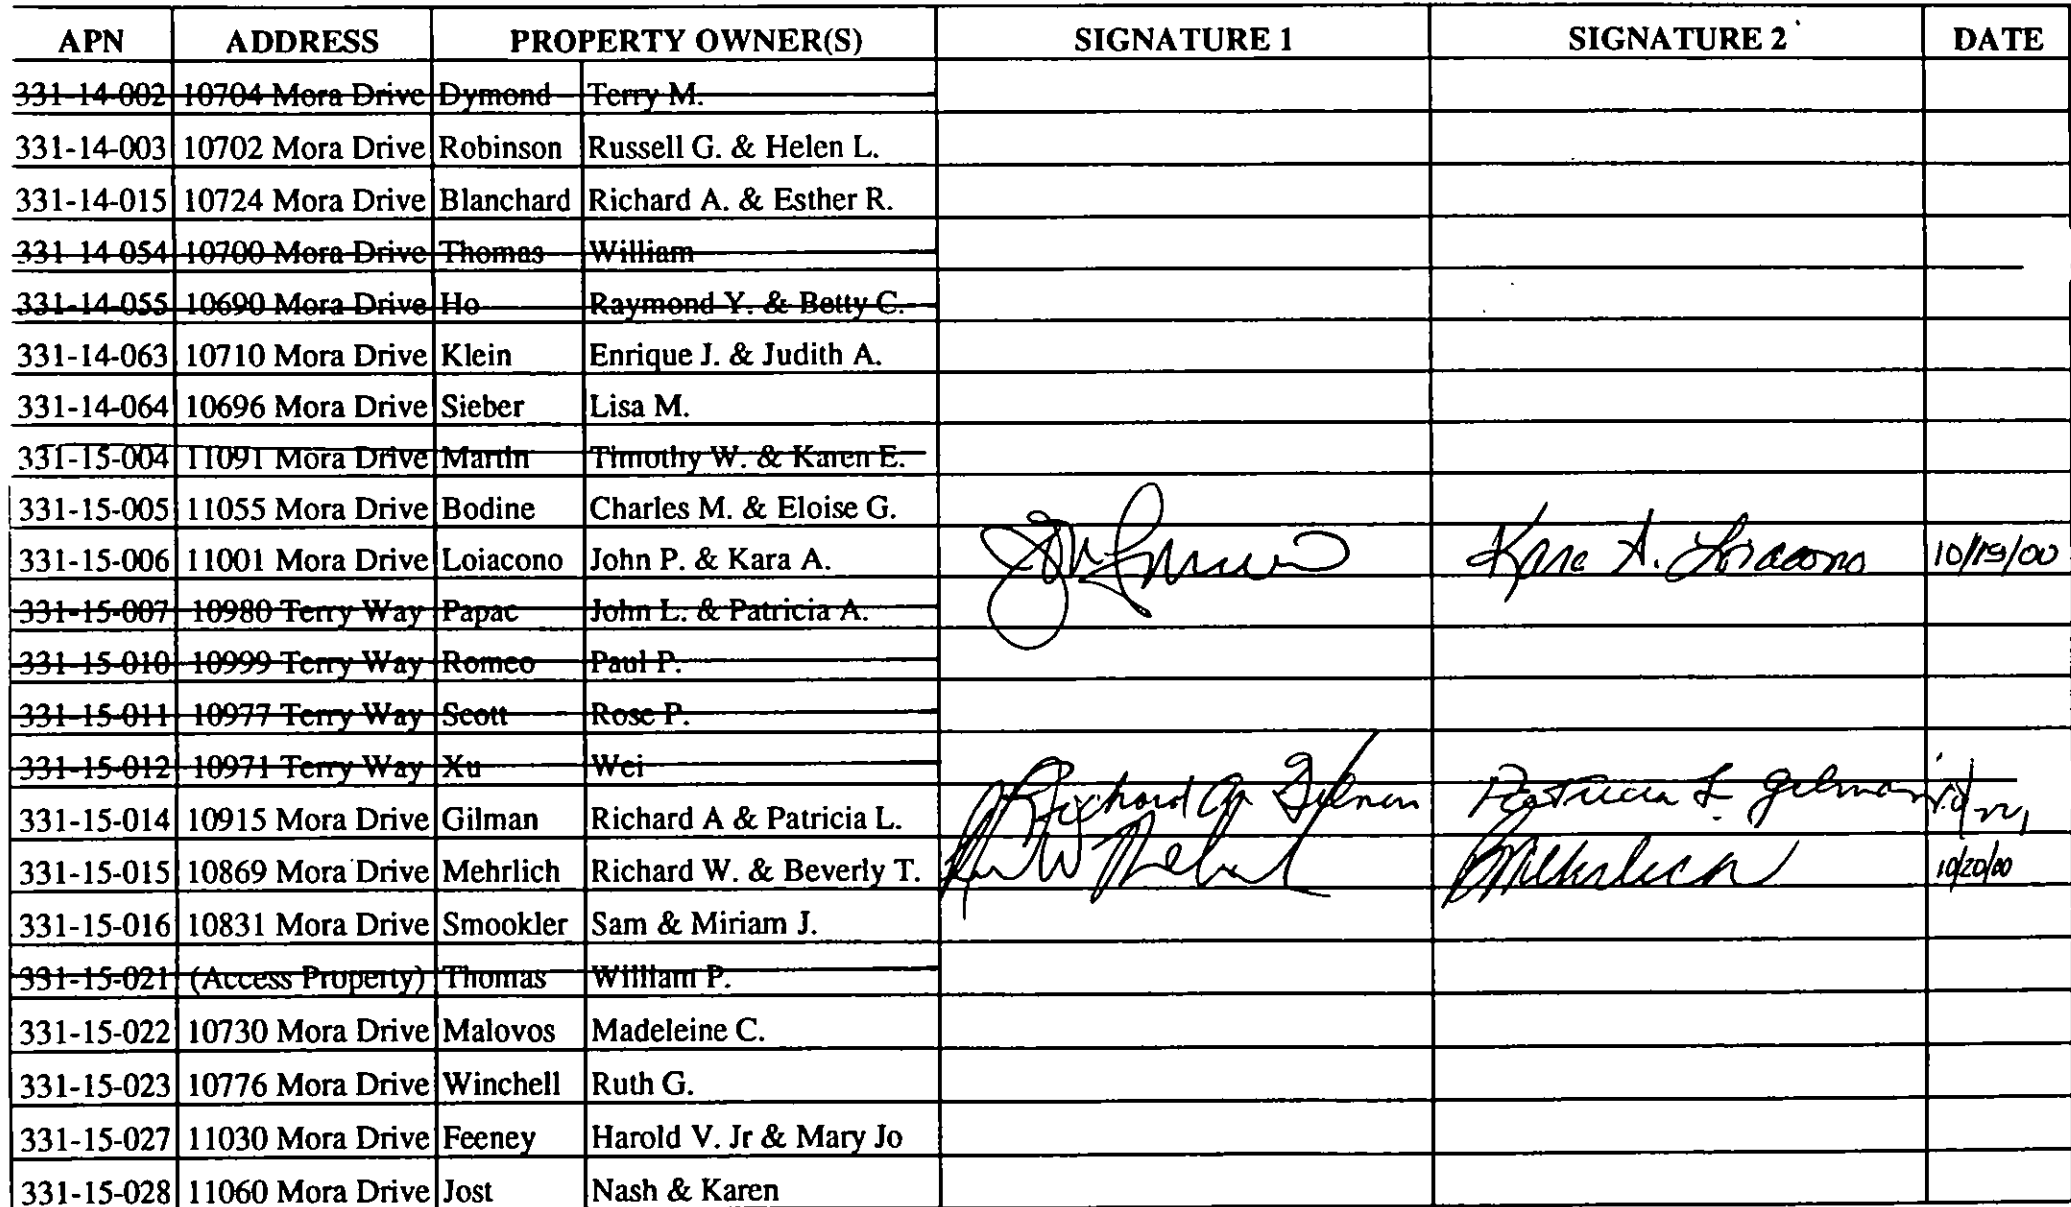 APN ADDRESS PROPERTY OWNER(S) SIGNATURE 1 SIGNATURE 2 DATE
331-14-002 10704 Mora Drive Dymond Terry M.
331-14-003 10702 Mora Drive Robinson Russell G. & Helen L.
331-14-015 10724 Mora Drive Blanchard Richard A. & Esther R.
331-14-054 10700 Mora Drive Thomas William
331-14-055 10690 Mora Drive Ho Raymond Y. & Betty C.
331-14-063 10710 Mora Drive Klein Enrique J. & Judith A.
331-14-064 10696 Mora Drive Sieber Lisa M.
331-15-004 11091 Mora Drive Martin Timothy W. & Karen E.
331-15-005 11055 Mora Drive Bodine Charles M. & Eloise G.
331-15-006 11001 Mora Drive Loiacono John P. & Kara A. Kara A. Loiacono 10/19/00
331-15-007 10980 Terry Way Papac John L. & Patricia A.
331-15-010 10999 Terry Way Romeo Paul P.
331-15-011 10977 Terry Way Scott Rose P.
331-15-012 10971 Terry Way Xu Wei
331-15-014 10915 Mora Drive Gilman Richard A & Patricia L. Richard A Gilman Patricia L Gilman
331-15-015 10869 Mora Drive Mehrlich Richard W. & Beverly T. BMehrlich 10/20/00
331-15-016 10831 Mora Drive Smookler Sam & Miriam J.
331-15-021 (Access Property) Thomas William P.
331-15-022 10730 Mora Drive Malovos Madeleine C.
331-15-023 10776 Mora Drive Winchell Ruth G.
331-15-027 11030 Mora Drive Feeney Harold V. Jr & Mary Jo
331-15-028 11060 Mora Drive Jost Nash & Karen